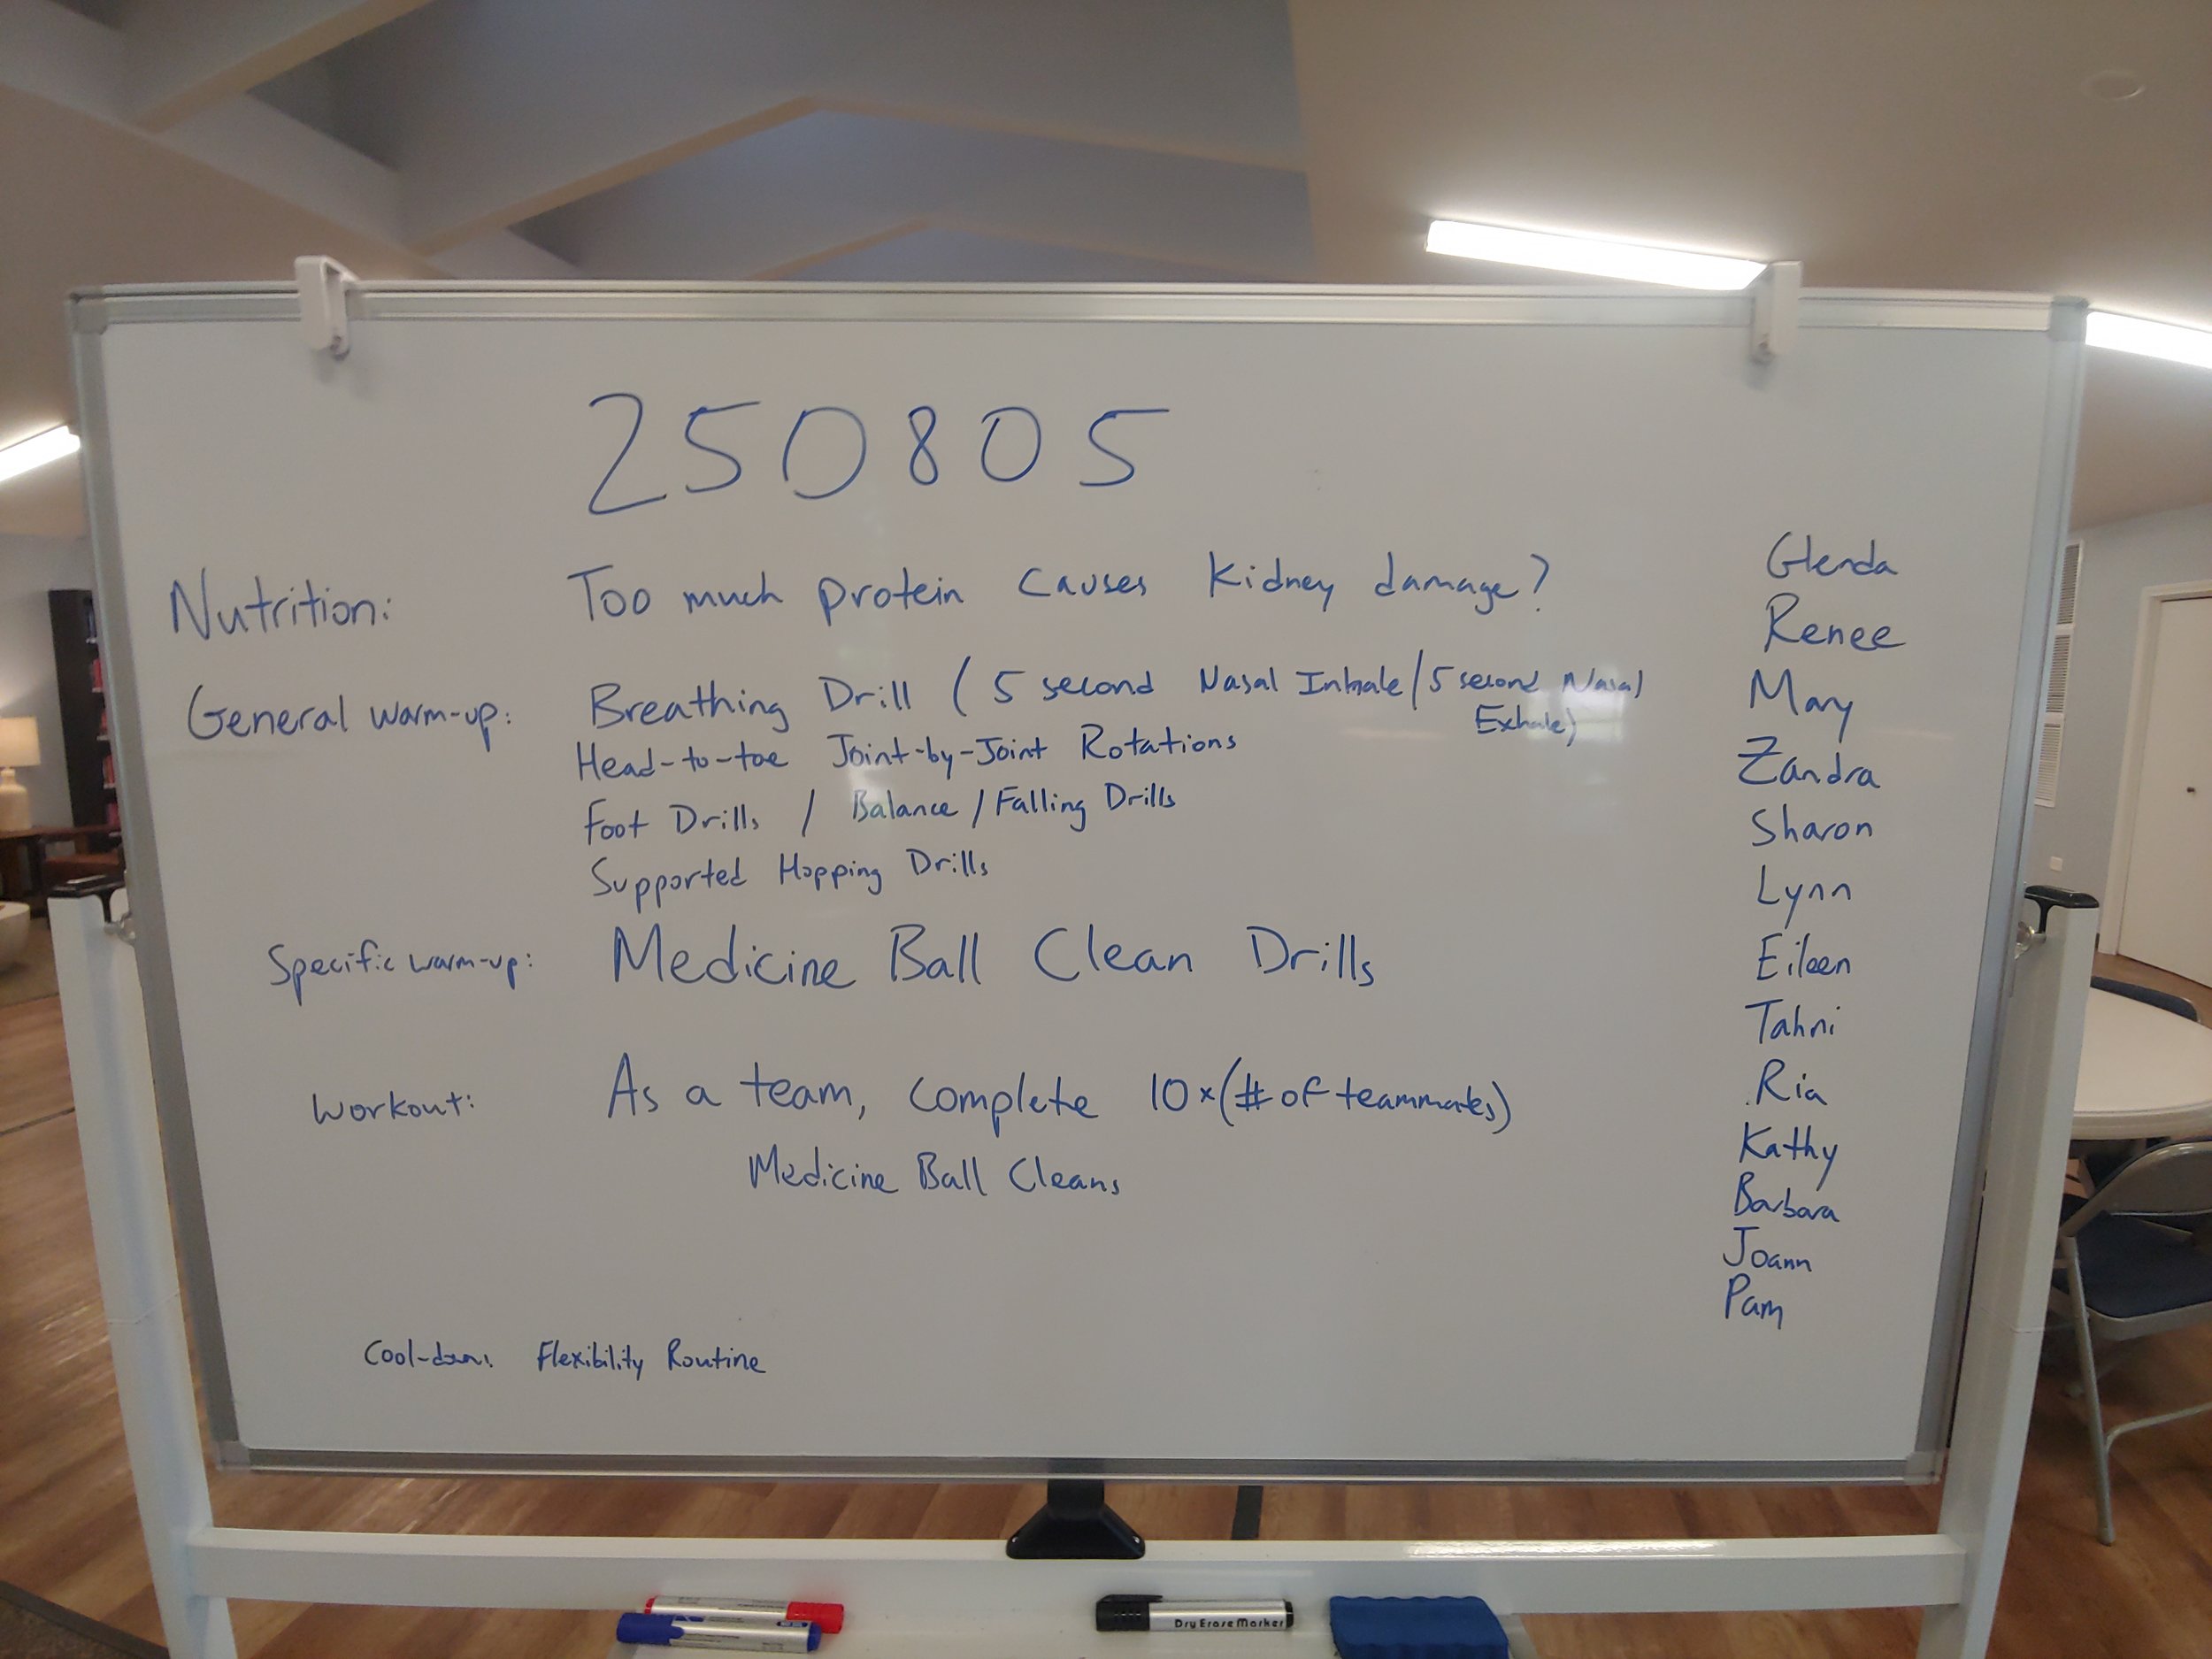 250805
Nutrition: Too much protein causes Kidney damage?
General warm-up: Breathing Drill (5 second Nasal Inhale/5 second Nasal
Exhale)
Head-to-toe Joint-by-Joint Rotations
Foot Drills / Balance / Falling Drills
Supported Hopping Drills
Specific warm-up: Medicine Ball Clean Drills
Workout: As a team, complete 10x(# of teammates)
Medicine Ball Cleans
Cool-down: Flexibility Routine
Glenda
Renee
May
Zandra
Sharon
Lynn
Eileen
Tahni
Ria
Kathy
Barbara
Joann
Pam
Dry Erase Marker